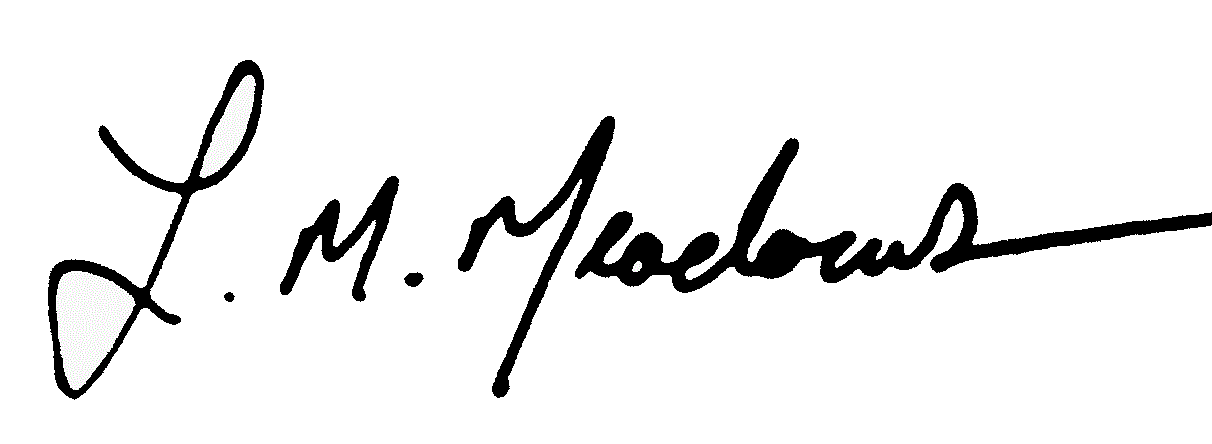 L. M. Meadows